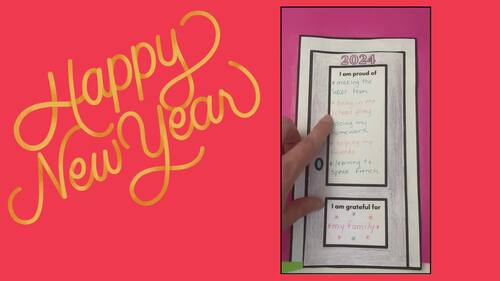 Happy
New Year
2024
I am proud of
making the
soccer team
being in the
school play
doing my
homework
helping my
friends
learning to
speak French
I am grateful for
my family